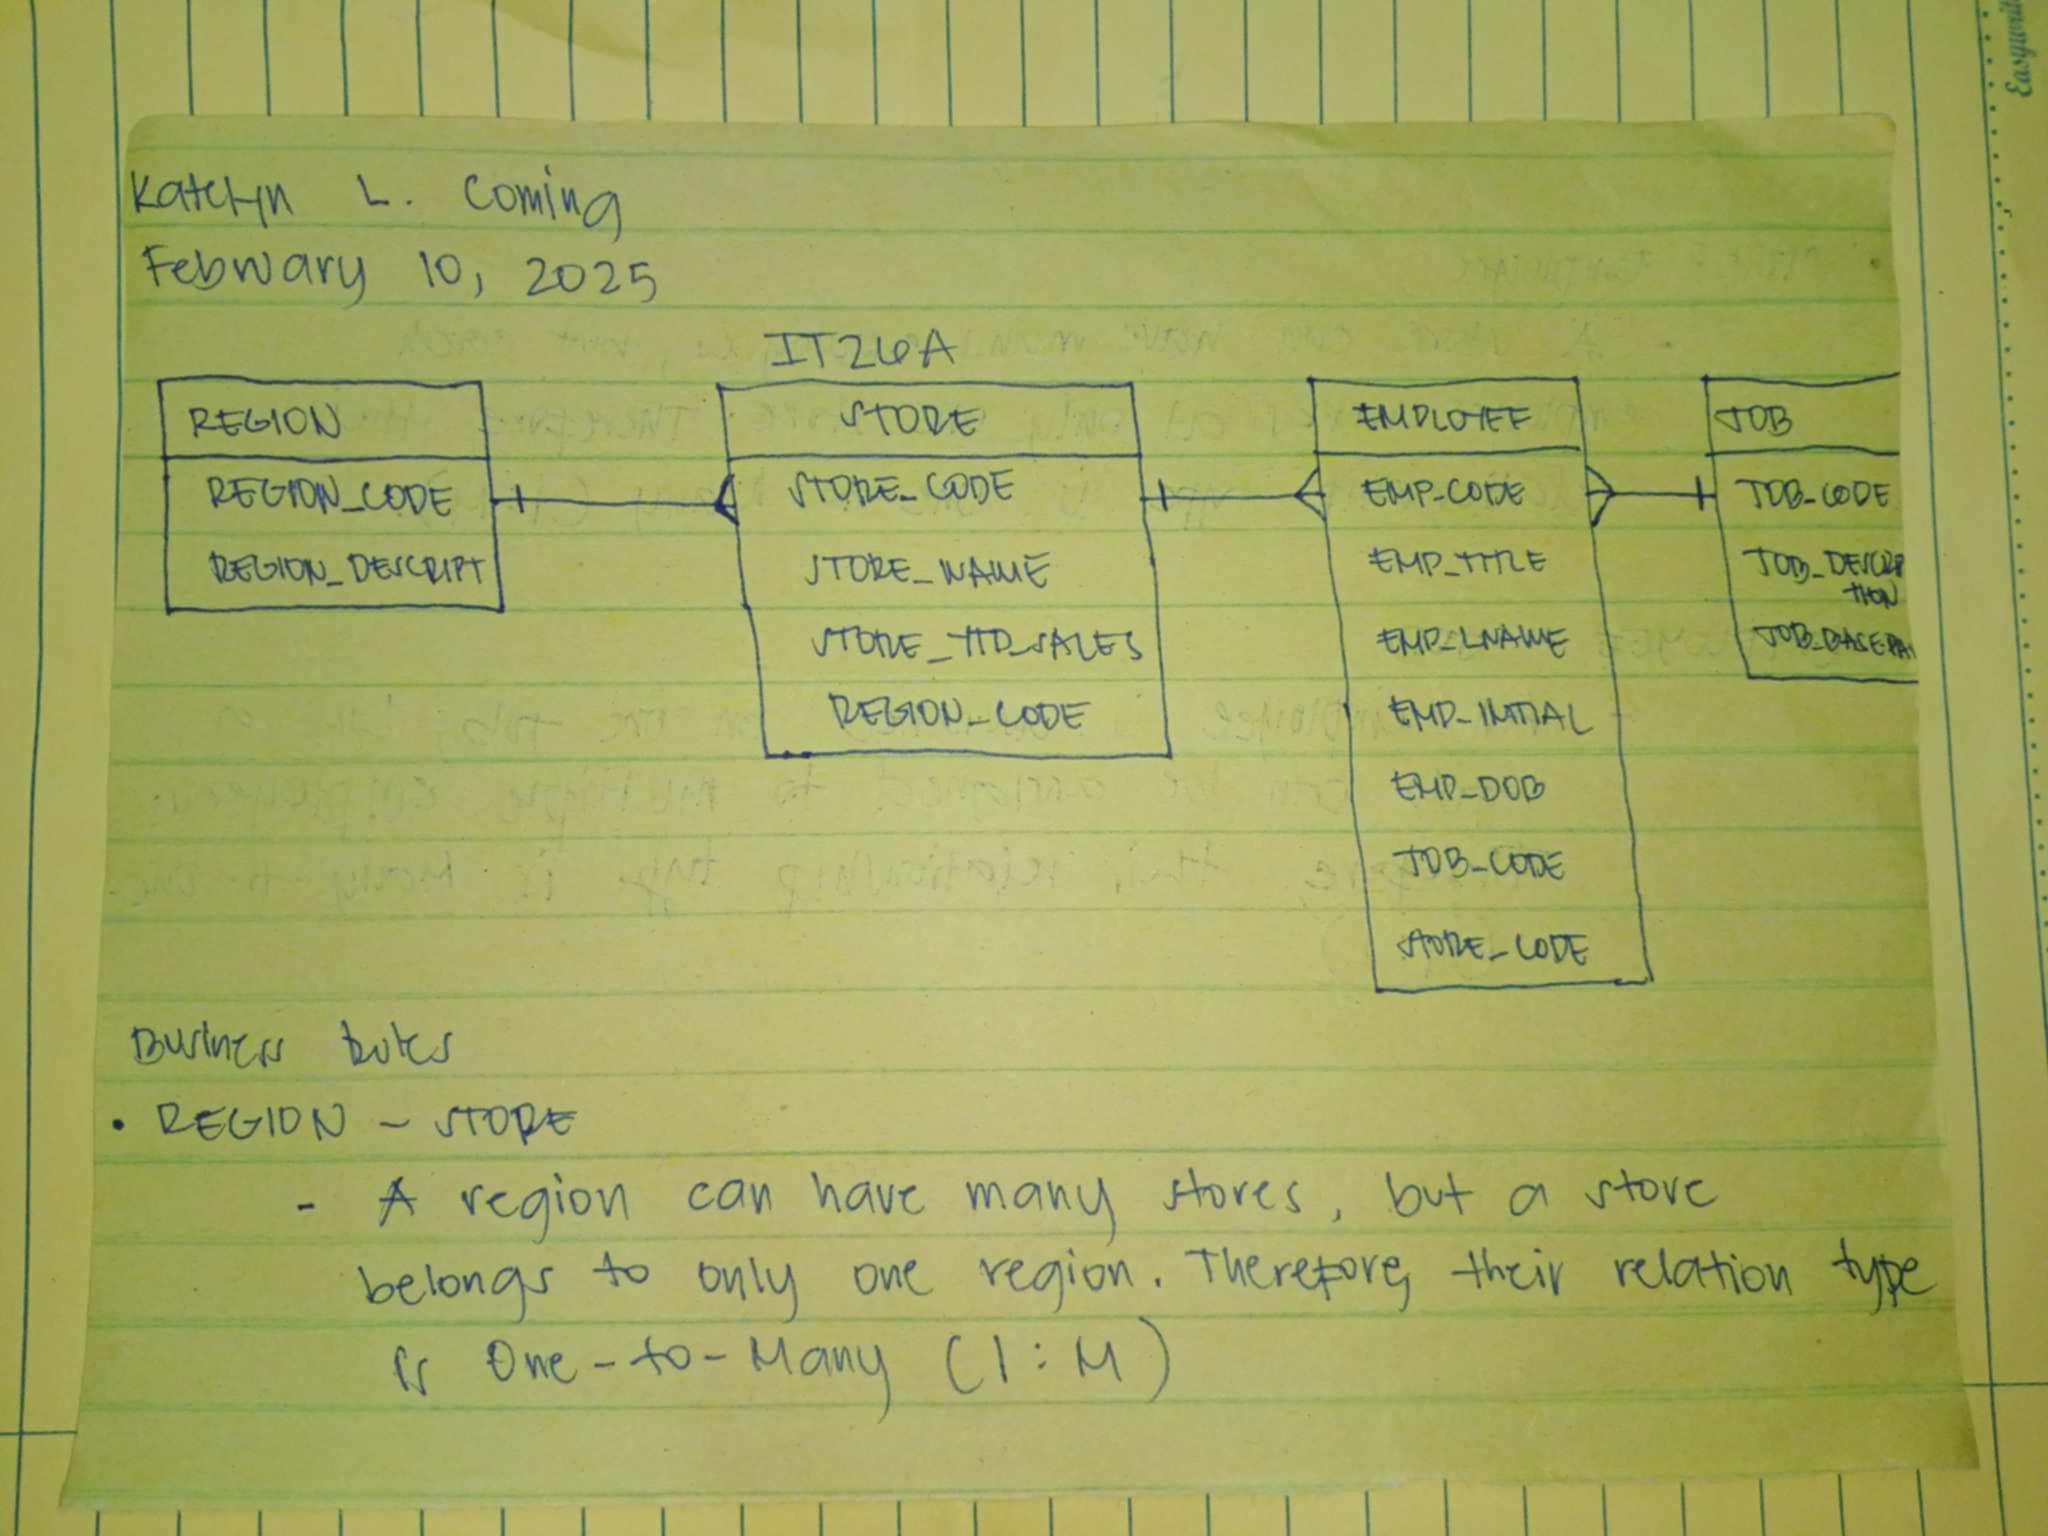 Katelyn L. Coming
February 10, 2025
IT26A
REGION
REGION_CODE
REGION_DESCRIPT
STORE
STORE_CODE
STORE_NAME
STORE_YTD_SALES
REGION_CODE
EMPLOYEE
EMP_CODE
EMP_TITLE
EMP_LNAME
EMP_INITIAL
EMP_DOB
JOB_CODE
STORE_CODE
JOB
JOB_CODE
JOB_DESCRIP
TION
JOB_BASEPA
Business Rules
• REGION - STORE
- A region can have many stores, but a store
belongs to only one region. Therefore, their relation type
is One-to-Many (1:M)